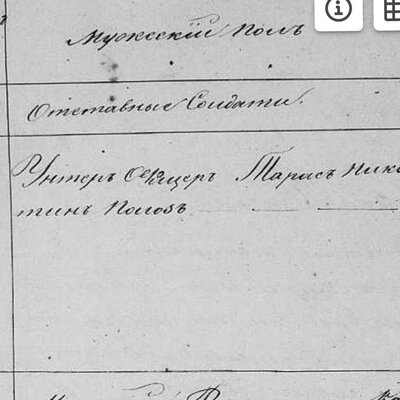 Мужескiй полъ
Отставные Солдаты.
Унтеръ Офицеръ Тарасъ Ники
тинъ Полозъ